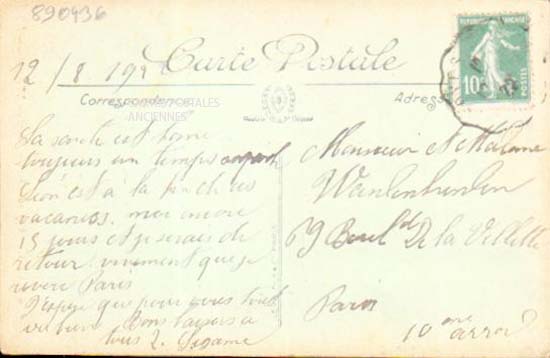 890436
Carte Postale
12/8 192
Correspondance
CARTES POSTALES
ANCIENNES
Adresse
RÉPUBLIQUE FRANÇAISE
10
La santé est bonne
toujours un temps
Léon est a la pêche
vacances. moi encore
15 jours et je serais de
retour vivement que je
revere Paris
J'espère que pour vous tout
va bien Bons baisers a
tous 2. Suzanne
Monsieur et Madame
69 Boul d De la Villette
Paris
10 eme arrond